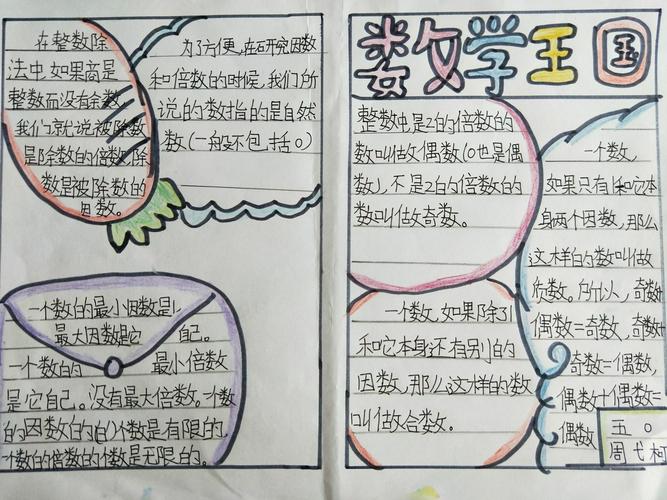 在整数除
法中,如果商是
整数而没有余数,
我们就说被除数
是除数的倍数,除
数是被除数的
因数。
为了方便,在研究因数
和倍数的时候,我们所
说的数指的是自然
数(一般不包括0)
一个数的最小因数是1,
最大因数是它自己。
一个数的最小倍数
是它自己。没有最大倍数。一个数
的因数的个数是有限的,
一个数的倍数的个数是无限的。
数学王国
整数中是2的倍数的
数叫做偶数(0也是偶
数),不是2的倍数的
数叫做奇数。
一个数,如果除了1
和它本身还有别的
因数,那么这样的数
叫做合数。
一个数,
如果只有1和它本
身两个因数,那么
这样的数叫做
质数。所以,奇数
偶数=奇数,奇数
奇数=偶数,
偶数+偶数=
偶数
五 0
周弋柯